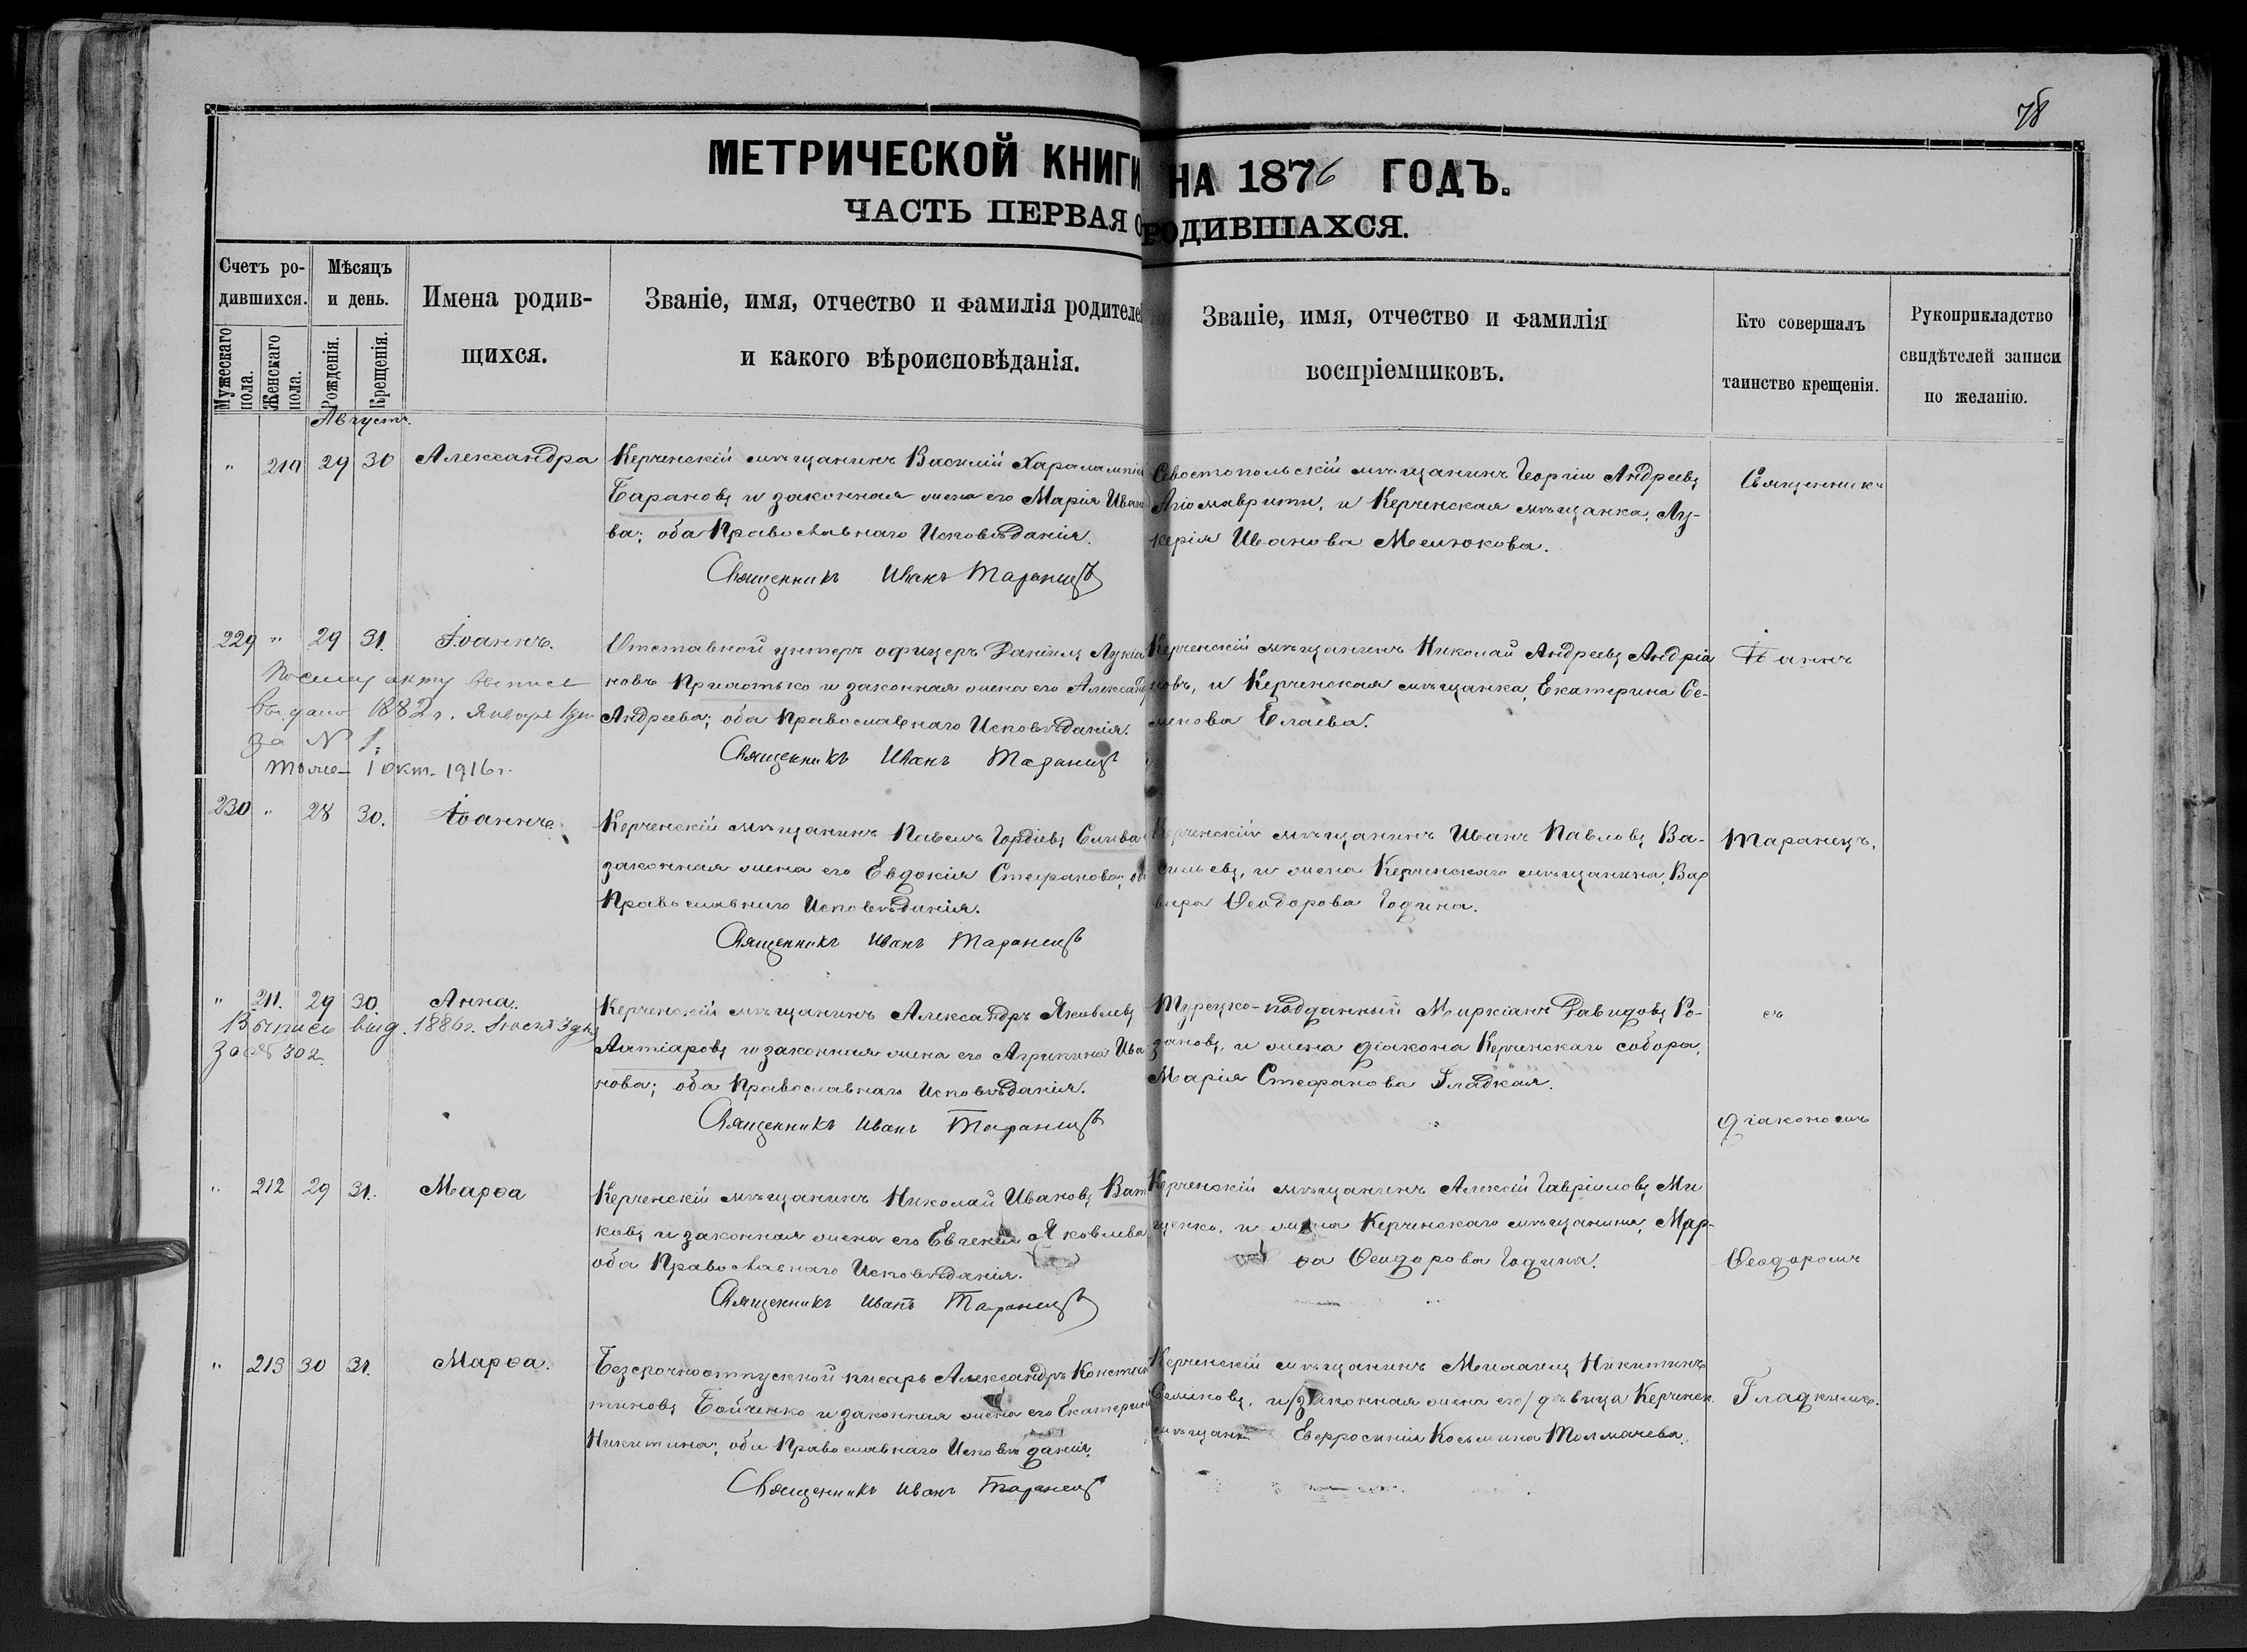 78
МЕТРИЧЕСКОЙ КНИГИ НА 1876 ГОДЪ.
ЧАСТЬ ПЕРВАЯ О РОДИВШИХСЯ.
Счетъ ро-
дившихся.
Мужескаго пола.
Женскаго пола.
Мѣсяцъ
и день.
Рожденія.
Крещенія.
Имена родив-
шихся.
Званіе, имя, отчество и фамилія родителей
и какого вѣроисповѣданія.
Званіе, имя, отчество и фамилія
воспріемниковъ.
Кто совершалъ
таинство крещенія.
Рукоприкладство
свидѣтелей записи
по желанію.
Августъ.
" 210 29 30 Александра
Керченскій мѣщанинъ Василій Харалампіев
Барановъ и законная жена его Марія Ивано
ва; оба Православнаго Исповѣданія.
Священникъ Иванъ Таранецъ
Севостопольскій мѣщанинъ Георгій Андреевъ
Агіомаврити, и Керченская мѣщанка, Лу-
керія Иванова Мелюкова.
Священникъ
229 " 29 31. Іоаннъ.
По сему акту выпись
выдано 1882 г. Января 1 дня
за № 1.
Тоже - 1 окт. 1916 г.
Отставной унтеръ офицеръ Даніилъ Лукіа
новъ и законная жена его Александ
Андреева; оба Православнаго Исповѣданія.
Священникъ Иванъ Таранецъ
Керченскій мѣщанинъ Николай Андреевъ Андріа
новъ, и Керченская мѣщанка, Екатерина Се-
менова Елаева.
Іоаннъ
230 " 28 30. Іоаннъ.
Керченскій мѣщанинъ Павелъ Гордіевъ
законная жена его Евдокія Стефанова; об
Православнаго Исповѣданія.
Священникъ Иванъ Таранецъ
Керченскій мѣщанинъ Иванъ Павловъ Ва-
сильевъ, и жена Керченскаго мѣщанина, Вар
вара Ѳеодорова Година.
Таранецъ.
" 211. 29 30 Анна.
Выпись выд. 1886 г.
за № 302
Керченскій мѣщанинъ Александръ Яковлевъ
Алтіаровъ и законная жена его Агрипина Ива
нова; оба Православнаго Исповѣданія.
Священникъ Иванъ Таранецъ
Турецко-подданный Миркіанъ Давидовъ Ро-
зановъ, и жена діакона Керченскаго собора,
Марія Стефанова Гладкая.
съ
діакономъ
" 212 29 31. Марѳа
Керченскій мѣщанинъ Николай Ивановъ Ват
ковъ и законная жена его Евгенія Яковлева
оба Православнаго Исповѣданія.
Священникъ Иванъ Таранецъ
Керченскій мѣщанинъ Алексій Гавріиловъ Ми
щенко, и жена Керченскаго мѣщанина, Мар-
ѳа Ѳеодорова Година.
Ѳеодоромъ
" 213 30 31. Марѳа.
Безсрочноотпускной писарь Александръ Констан
тиновъ Бойченко и законная жена его Екатерина
Никитина; оба Православнаго Исповѣданія.
Священникъ Иванъ Таранецъ
Керченскій мѣщанинъ Никитинъ
Селиновъ, и /законная жена его/ дѣвица Керченск.
мѣщанк Евфросинія Косьмина Толмачева.
Гладкимъ.